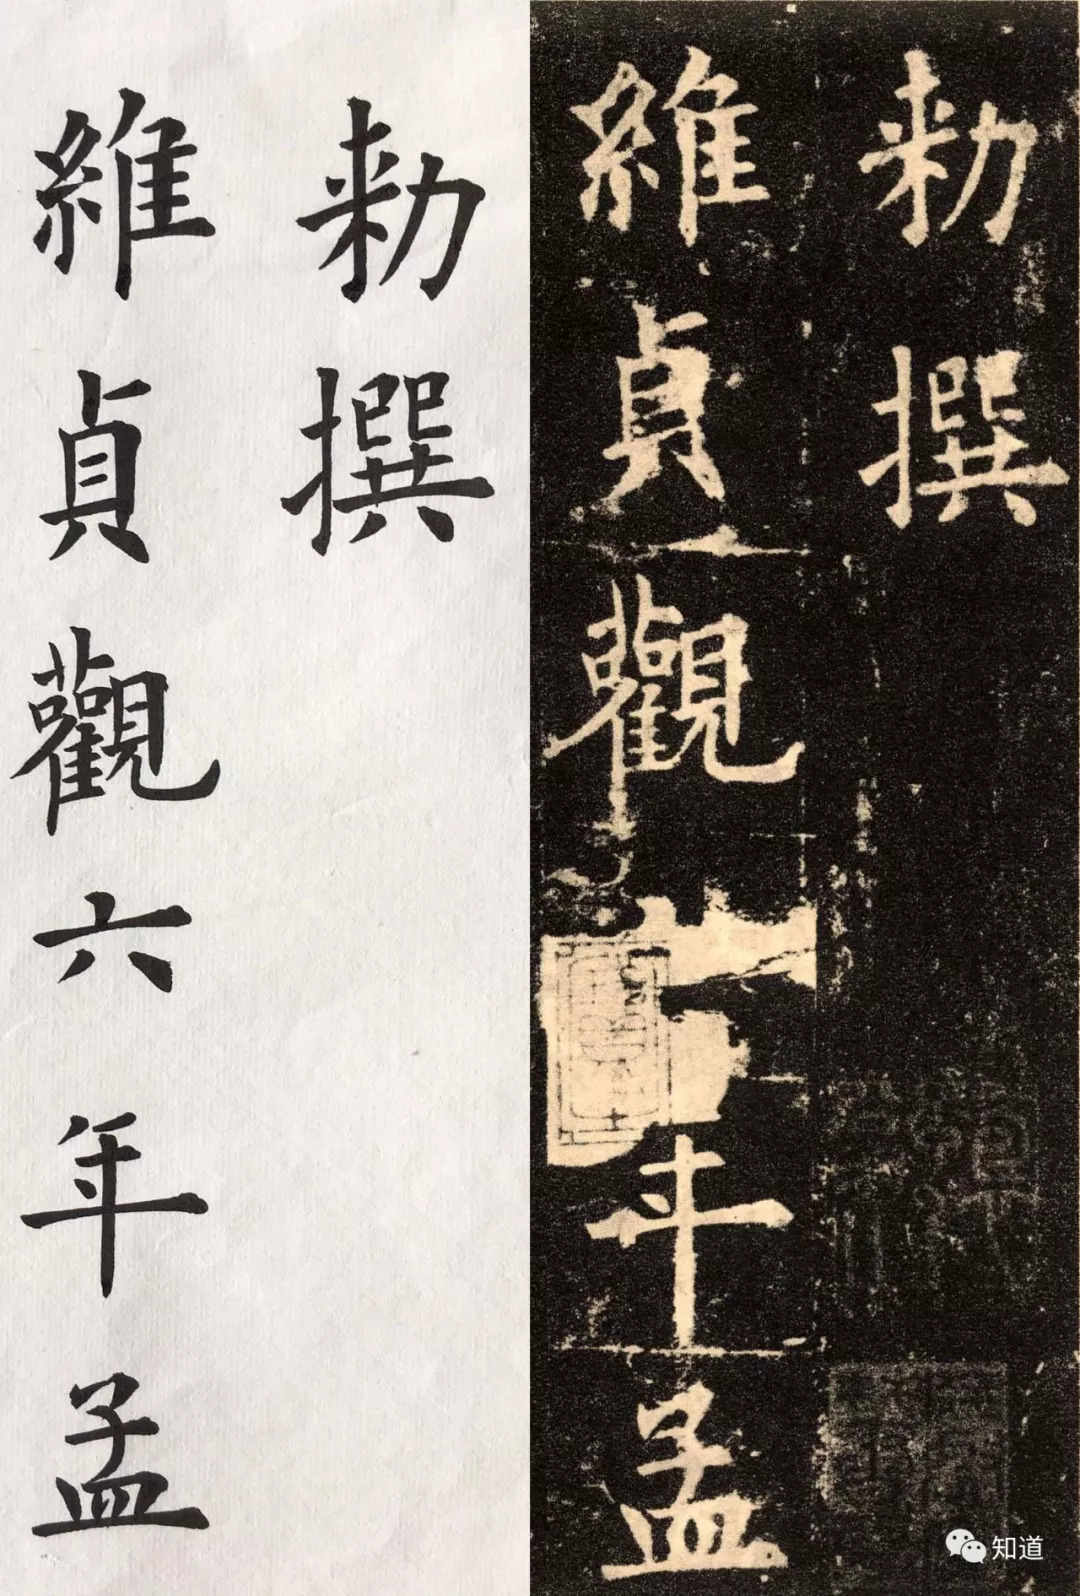 勑撰
維貞觀六年孟
勑撰
維貞觀
年孟
知道